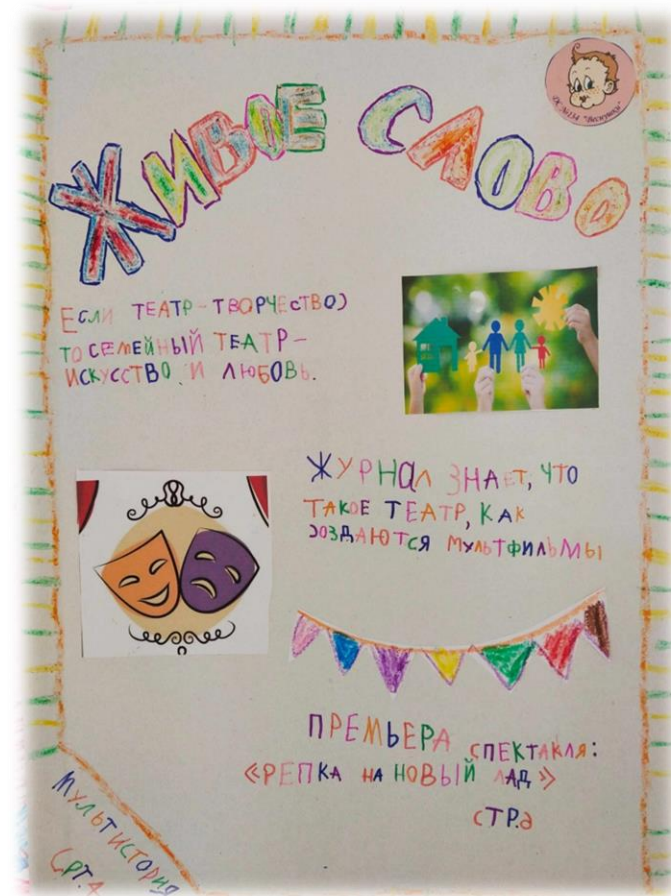 ЖИВОЕ СЛОВО
ДС №134 "Веснушки"
ЕСЛИ ТЕАТР-ТВОРЧЕСТВО,
ТО СЕМЕЙНЫЙ ТЕАТР-
ИСКУССТВО И ЛЮБОВЬ.
ЖУРНАЛ ЗНАЕТ, ЧТО
ТАКОЕ ТЕАТР, КАК
СОЗДАЮТСЯ МУЛЬТФИЛЬМЫ
ПРЕМЬЕРА СПЕКТАКЛЯ:
«РЕПКА НА НОВЫЙ ЛАД»
СТР.
МУЛЬТ ИСТОРИЯ